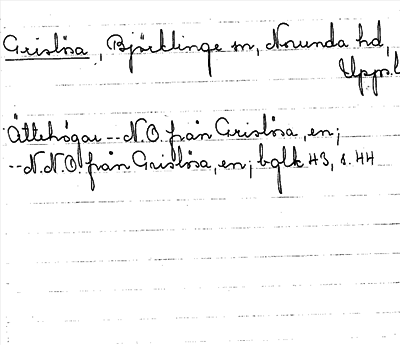 Grislösa, Björklinge sn, Norunda hd,
Upps.l
Ättehögar -- N.O. från Grislösa, en;
-- N.N.O. från Grislösa, en; bglk 43, s. 44